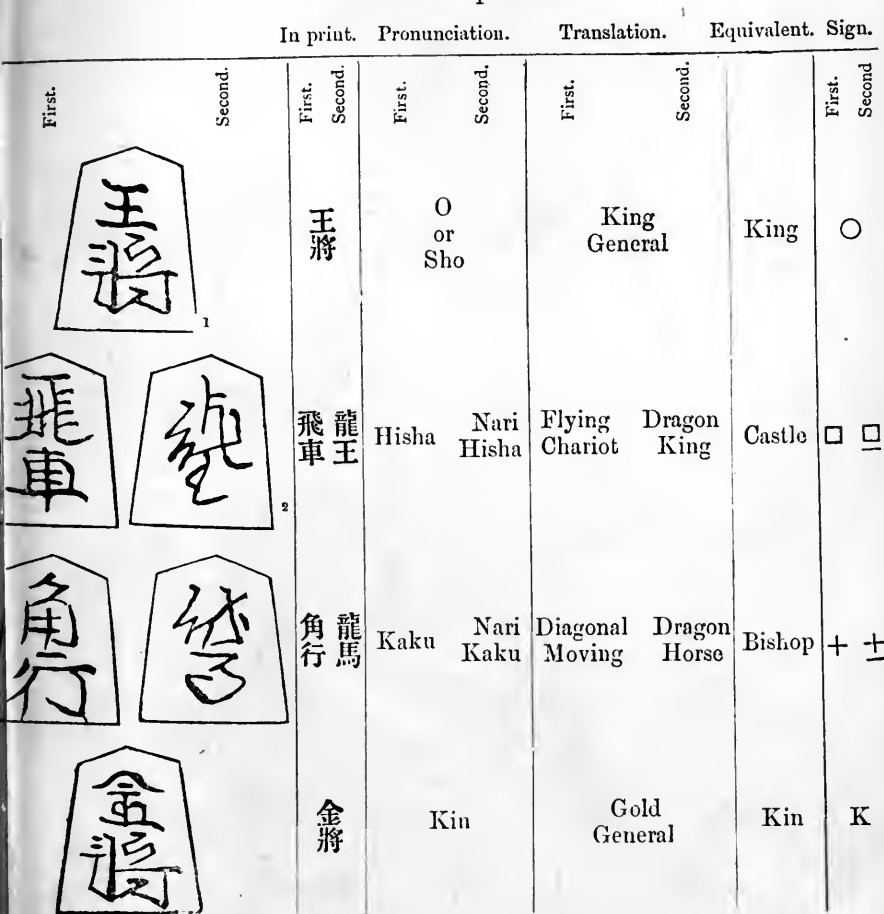 In print. Pronunciation. Translation. Equivalent. Sign.
First. Second. First. Second. First. Second. First. Second. First. Second
王將 王將 O or Sho King General King ○
1
飛車 龍王 飛車 龍王 Hisha Nari Hisha Flying Chariot Dragon King Castle □ □
2
角行 龍馬 角行 龍馬 Kaku Nari Kaku Diagonal Moving Dragon Horse Bishop + +
金將 金將 Kin Gold General Kin K